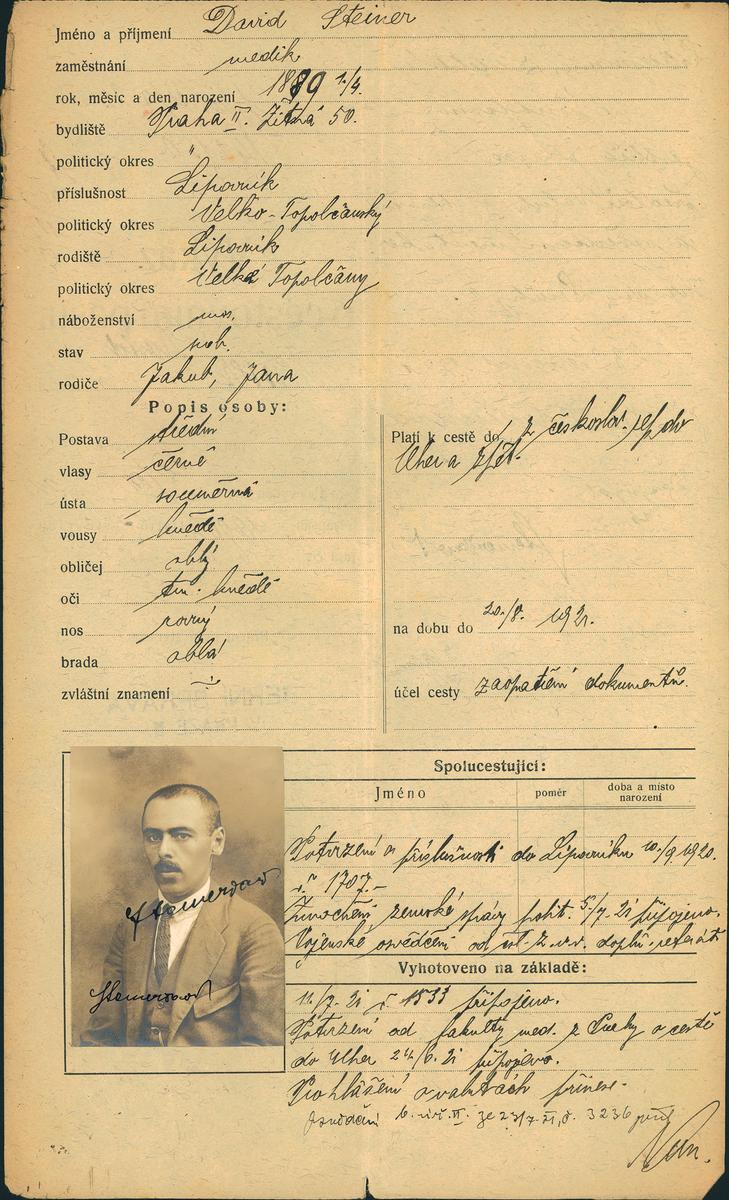 Jméno a příjmení David Steiner
zaměstnání medik
rok, měsic a den narození 1889 1/4.
bydliště Praha II. Žitná 50.
politický okres "
příslušnost Lipovník
politický okres Velko-Topolčanský
rodiště Lipovník
politický okres Velké Topolčany
náboženství mos.
stav svob.
rodiče Jakub, Jana
Popis osoby:
Postava střední
vlasy černé
ústa souměrná
vousy hnědé
obličej oblý
oči tm. hnědé
nos rovný
brada oblá
zvláštní znamení
Platí k cestě do z českoslov. rep. do
Uher a zpět.
na dobu do 20./8. 1921.
účel cesty zaopatření dokumentů.
Spolucestující:
Jméno poměr doba a místo narození
Potvrzení o příslušnosti do Lipovníku 10./9 1920.
č. 1707.-
Zmocnění zemské správy polit. 5/7. 21 připojeno.
Vojenské osvědčení od doplň. referát
Vyhotoveno na základě:
11./7. 21 č. 1533 připojeno.
Potvrzení od fakulty med. z Prahy o cestě
do Uher 24/6. 21 připojeno.
Prohlášení o valutách přinese.
23/7. 21, č. 3236